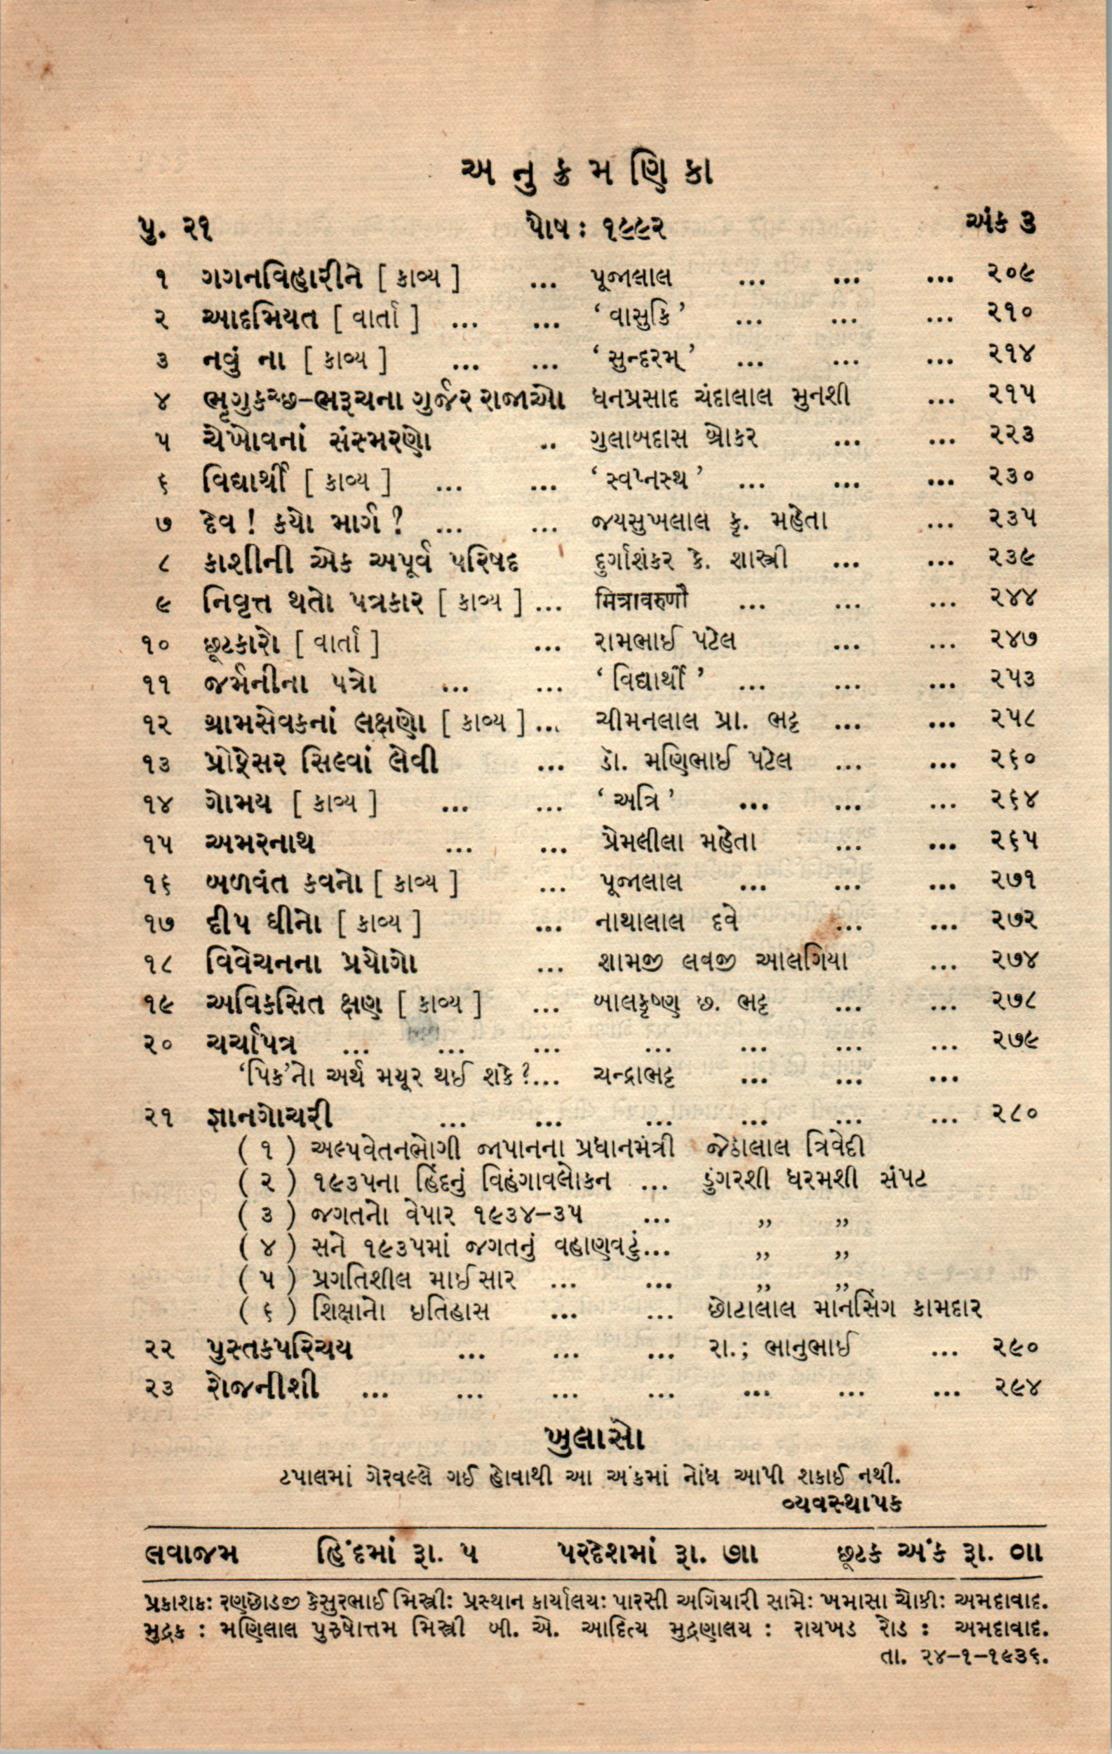 અ નુ ક્ર મ ણિ કા
પુ. ૨૧ પોષ : ૧૯૯૨ અંક ૩
૧ ગગનવિહારીને [ કાવ્ય ] ... પૂજાલાલ ... ... ... ૨૦૯
૨ આદમિયત [ વાર્તા ] ... ... ‘ વાસુકિ ’ ... ... ... ૨૧૦
૩ નવું ના [ કાવ્ય ] ... ... ‘ સુન્દરમ્ ’ ... ... ... ૨૧૪
૪ ભૃગુકચ્છ–ભરૂચના ગુર્જર રાજાઓ ધનપ્રસાદ ચંદાલાલ મુનશી ... ૨૧૫
૫ ચેખોવનાં સંસ્મરણો .. ગુલાબદાસ બ્રોકર ... ... ૨૨૩
૬ વિદ્યાર્થી [ કાવ્ય ] ... ... ‘ સ્વપ્નસ્થ ’ ... ... ... ૨૩૦
૭ દેવ ! કયો માર્ગ ? ... ... જયસુખલાલ કૃ. મહેતા ... ૨૩૫
૮ કાશીની એક અપૂર્વ પરિષદ દુર્ગાશંકર કે. શાસ્ત્રી ... ... ૨૩૯
૯ નિવૃત્ત થતો પત્રકાર [ કાવ્ય ] ... मित्रावरुणौ ... ... ... ૨૪૪
૧૦ છૂટકારો [ વાર્તા ] ... રામભાઈ પટેલ ... ... ૨૪૭
૧૧ જર્મનીના પત્રો ... ... ‘ વિદ્યાર્થી ’ ... ... ... ૨૫૩
૧૨ ગ્રામસેવકનાં લક્ષણો [ કાવ્ય ] ... ચીમનલાલ પ્રા. ભટ્ટ ... ... ૨૫૮
૧૩ પ્રોફેસર સિલ્વાં લેવી ... ડૉ. મણિભાઈ પટેલ ... ... ૨૬૦
૧૪ ગોમય [ કાવ્ય ] ... ... ‘ અત્રિ ’ ... ... ... ૨૬૪
૧૫ અમરનાથ ... ... પ્રેમલીલા મહેતા ... ... ૨૬૫
૧૬ બળવંત કવનો [ કાવ્ય ] ... પૂજાલાલ ... ... ... ૨૭૧
૧૭ દીપ ઘીનો [ કાવ્ય ] ... નાથાલાલ દવે ... ... ૨૭૨
૧૮ વિવેચનના પ્રયોગો ... શામજી લવજી આલગિયા ... ૨૭૪
૧૯ અવિકસિત ક્ષણ [ કાવ્ય ] ... બાલકૃષ્ણ છ. ભટ્ટ ... ... ૨૭૮
૨૦ ચર્ચાપત્ર ... ... ... ... ... ... ... ૨૭૯
‘પિક’નો અર્થ મયૂર થઈ શકે ?... ચન્દ્રાભટ્ટ ... ... ...
૨૧ જ્ઞાનગોચરી ... ... ... ... ... ... ૨૮૦
( ૧ ) અલ્પવેતનભોગી જાપાનના પ્રધાનમંત્રી જેઠાલાલ ત્રિવેદી
( ૨ ) ૧૯૩૫ના હિંદનું વિહંગાવલોકન ... ડુંગરશી ધરમશી સંપટ
( ૩ ) જગતનો વેપાર ૧૯૩૪–૩૫ ... ,, ,,
( ૪ ) સને ૧૯૩૫માં જગતનું વહાણવટું... ,, ,,
( ૫ ) પ્રગતિશીલ માઈસાર ... ... ,, ,,
( ૬ ) શિક્ષાનો ઇતિહાસ ... ... છોટાલાલ માનસિંગ કામદાર
૨૨ પુસ્તકપરિચય ... ... ... રા.; ભાનુભાઈ ... ૨૯૦
૨૩ રોજનીશી ... ... ... ... ... ... ... ૨૯૪
ખુલાસો
ટપાલમાં ગેરવલ્લે ગઈ હોવાથી આ અંકમાં નોંધ આપી શકાઈ નથી.
વ્યવસ્થાપક
લવાજમ હિંદમાં રૂા. ૫ પરદેશમાં રૂા. ૭ાા છૂટક અંક રૂા. ૦ાા
પ્રકાશક: રણછોડજી કેસુરભાઈ મિસ્ત્રી: પ્રસ્થાન કાર્યાલય: પારસી અગિયારી સામે: ખમાસા ચોકી: અમદાવાદ.
મુદ્રક : મણિલાલ પુરુષોત્તમ મિસ્ત્રી બી. એ. આદિત્ય મુદ્રણાલય : રાયખડ રોડ : અમદાવાદ.
તા. ૨૪–૧–૧૯૩૬.